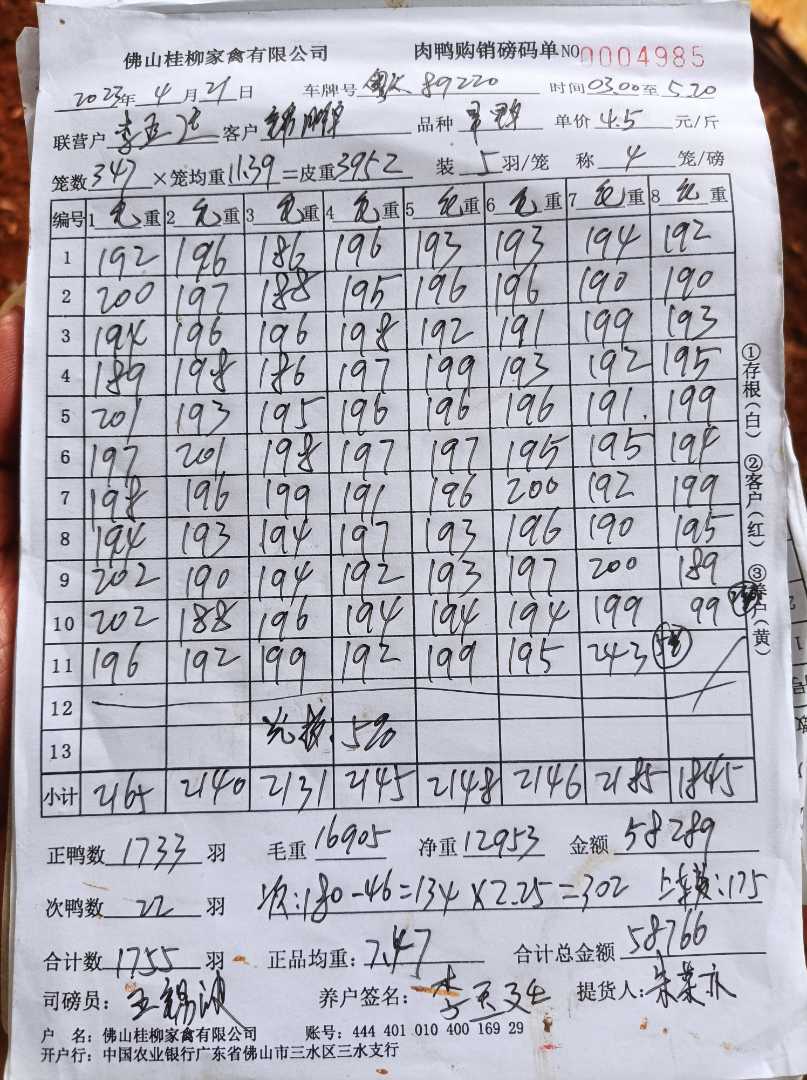 佛山桂柳家禽有限公司 肉鸭购销磅码单 NO 0004985
2023年 4月 21日 车牌号 89220 时间 03.00 至 5.20
联营户 客户 品种 单价 4.5 元/斤
笼数 347 ×笼均重 11.39 =皮重 3952 装 5 羽/笼 称 4 笼/磅
编号 1 毛重 2 毛重 3 毛重 4 毛重 5 毛重 6 毛重 7 毛重 8 毛重
1 192 196 186 196 193 193 194 192
2 200 197 188 195 196 196 190 190
3 194 196 196 198 192 191 199 193
4 189 198 186 197 199 193 192 195
5 201 193 195 196 196 196 191 199
6 197 201 198 197 197 195 195 194
7 198 196 199 191 196 200 192 199
8 194 193 194 197 193 196 190 195
9 202 190 194 192 193 197 200 189
10 202 188 196 194 194 194 199 99
11 196 192 199 192 199 195 243
12
13 520
小计 2165 2140 2131 2145 2148 2146 2185 1845
正鸭数 1733 羽 毛重 16905 净重 12953 金额 58289
次鸭数 22 羽 次:180-46=134×2.25=302 上车费:175
合计数 1755 羽 正品均重: 7.47 合计总金额 58766
司磅员: 养户签名: 提货人:
户 名: 佛山桂柳家禽有限公司 账号: 444 401 010 400 169 29
开户行: 中国农业银行广东省佛山市三水区三水支行
①存根(白) ②客户(红) ③养户(黄)